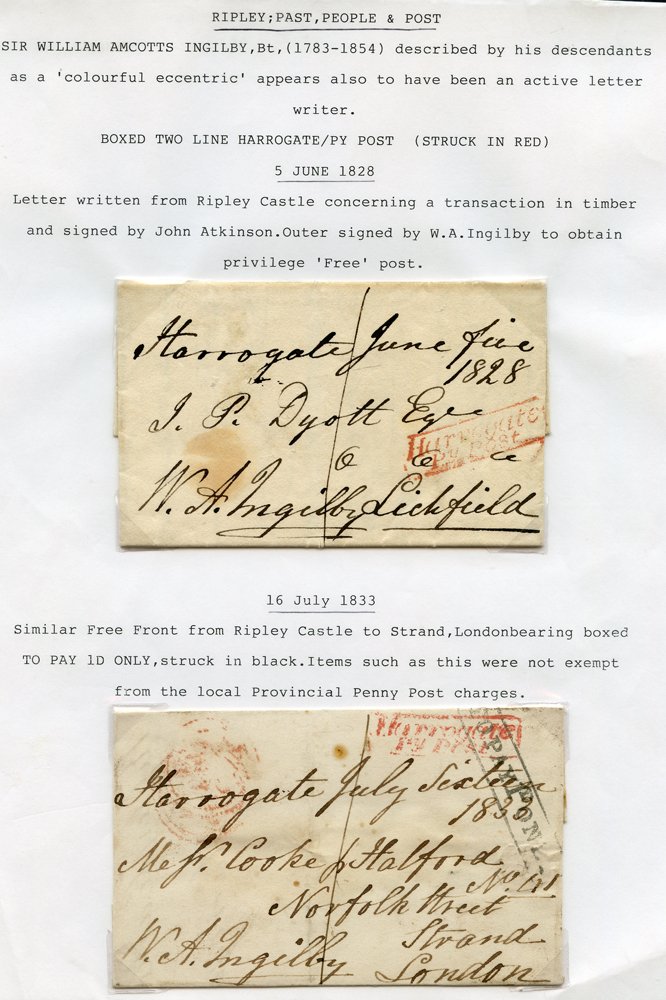 RIPLEY;PAST,PEOPLE & POST
SIR WILLIAM AMCOTTS INGILBY,Bt,(1783-1854) described by his descendants
as a 'colourful eccentric' appears also to have been an active letter
writer.
BOXED TWO LINE HARROGATE/PY POST (STRUCK IN RED)
5 JUNE 1828
Letter written from Ripley Castle concerning a transaction in timber
and signed by John Atkinson.Outer signed by W.A.Ingilby to obtain
privilege 'Free' post.
Harrogate June five
1828
J. P. Dyott Eqre
Harrogate
Py Post
W. A. Ingilby Lichfield
16 July 1833
Similar Free Front from Ripley Castle to Strand,Londonbearing boxed
TO PAY 1D ONLY,struck in black.Items such as this were not exempt
from the local Provincial Penny Post charges.
Harrogate
Py Post
Harrogate July Sixteen
1833
Messrs. Cooke & Halford
Norfolk Street
Strand
W. A. Ingilby London